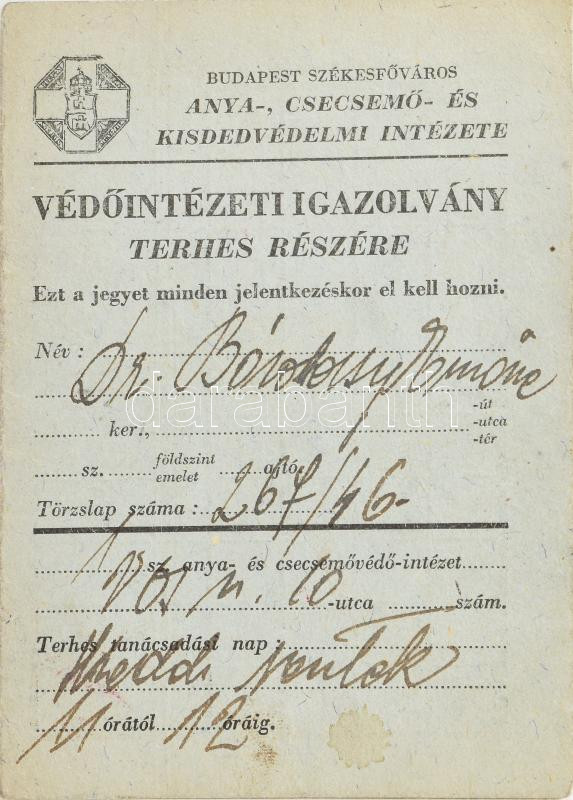 BUDAPEST SZÉKESFŐVÁROS
ANYA-, CSECSEMŐ- ÉS
KISDEDVÉDELMI INTÉZETE
VÉDŐINTÉZETI IGAZOLVÁNY
TERHES RÉSZÉRE
Ezt a jegyet minden jelentkezéskor el kell hozni.
Név :
Dr.
darabanth
ker., -út -utca -tér
sz. földszint emelet ajtó.
Törzslap száma : 267/46-
sz. anya- és csecsemővédő-intézet
10 -utca szám.
Terhes tanácsadási nap :
11 órától 12 óráig.